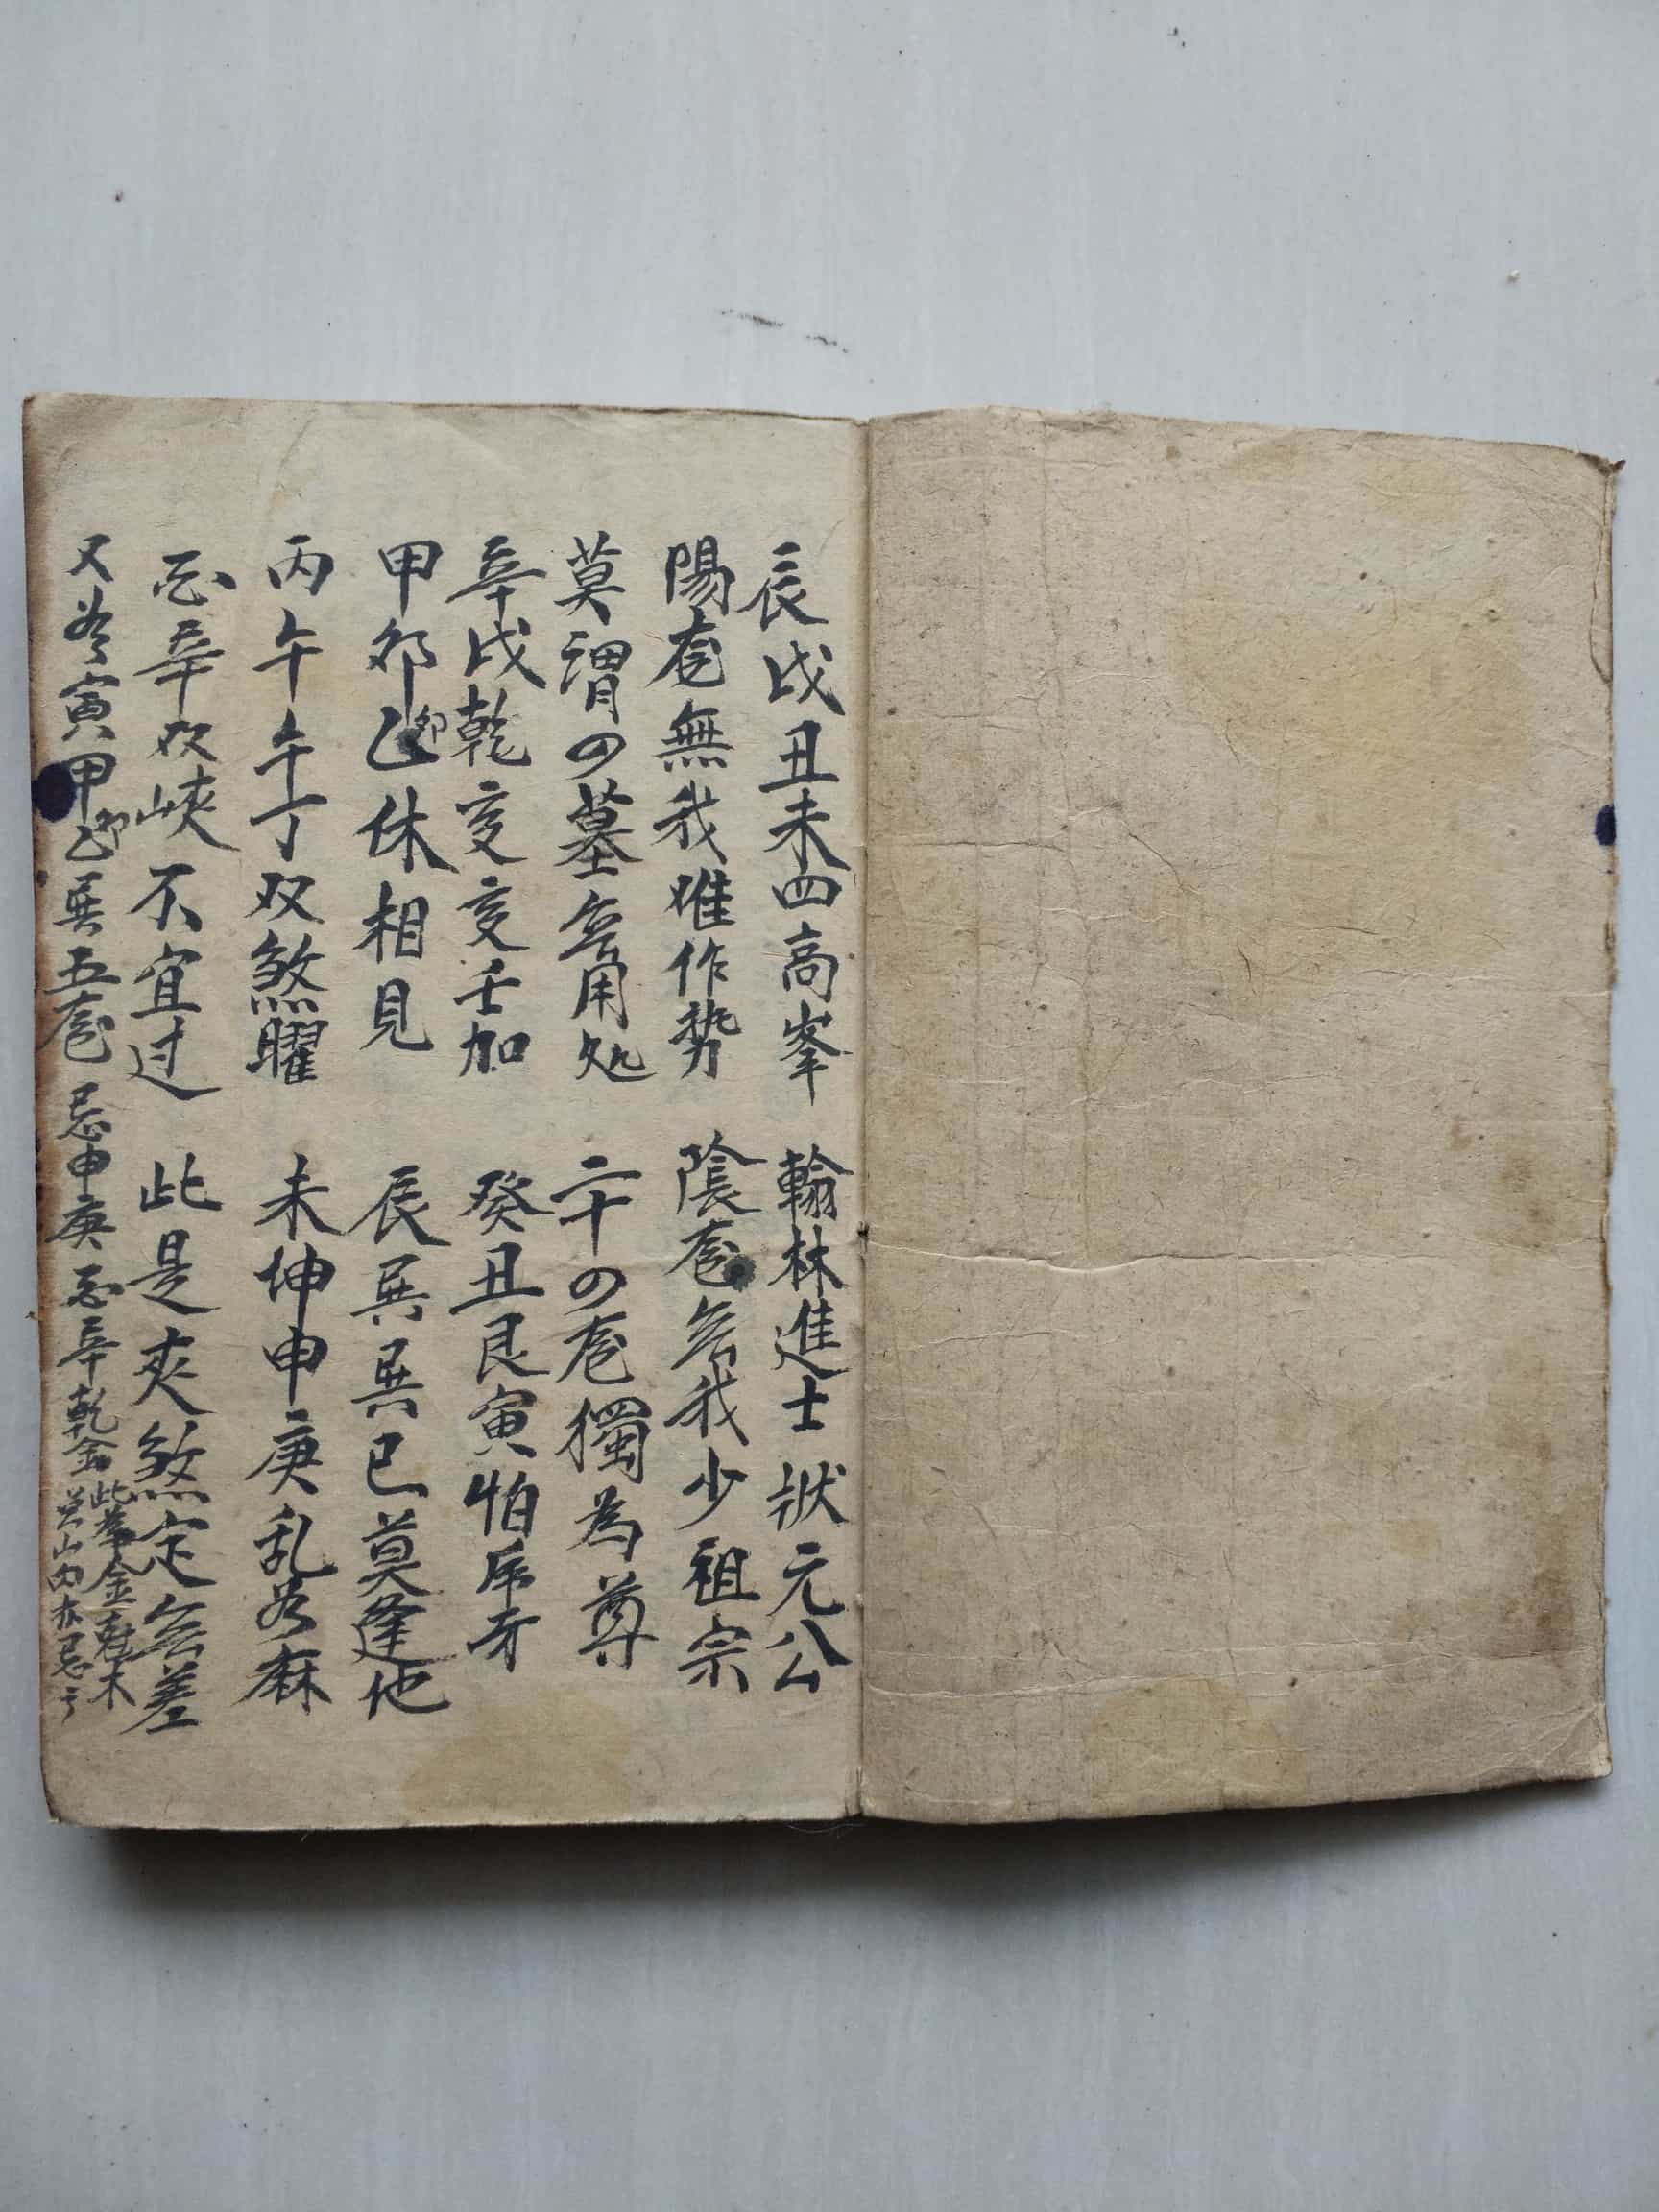 辰戌丑未四高峯 翰林進士狀元公
陽龙無我难作势 陰龙無我少祖宗
莫谓四墓無用処 二十四龙獨為尊
辛戌乾亥亥壬加 癸丑艮寅怕虎牙
甲卯乙休相見 辰巽巽巳莫逢他
丙午午丁双煞曜 未坤申庚乱如麻
酉辛双峽不宜过 此是夾煞定無差
又如寅甲卯乙巽五龙 忌申庚酉辛乾金 此為金剋木